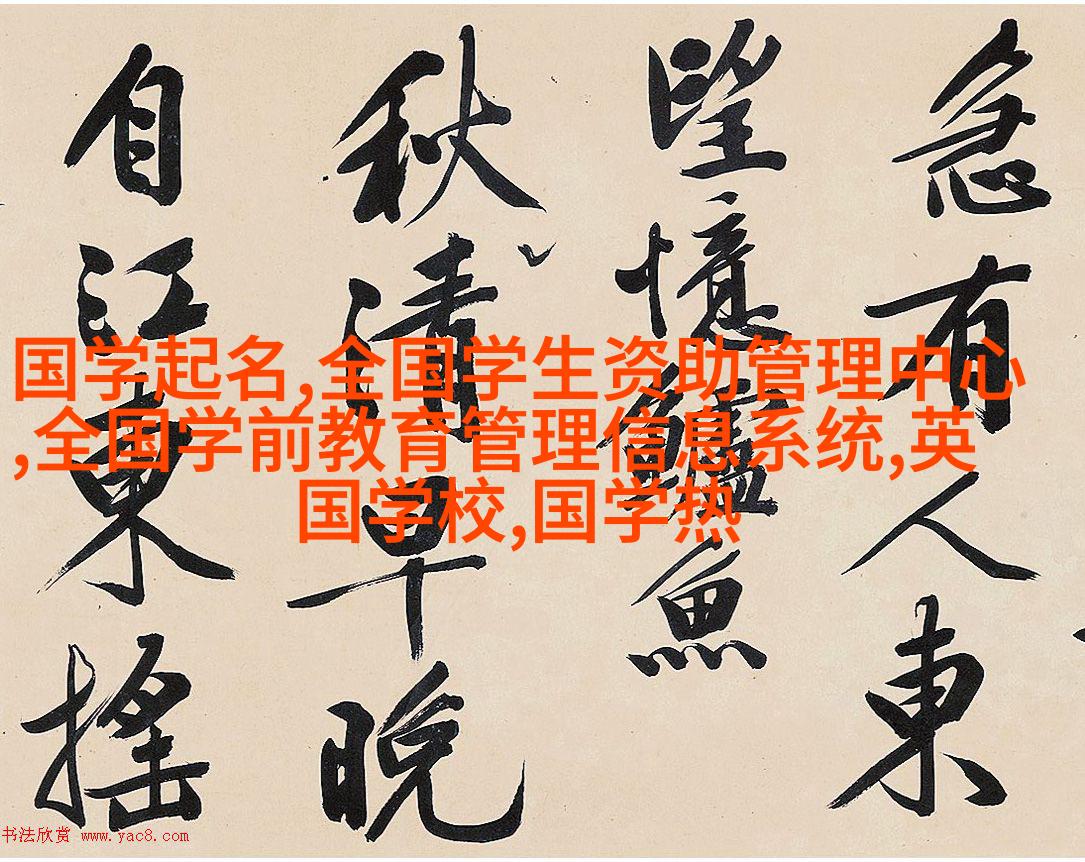 急有人東
望憶鱸魚
秋清早晚
自江東搖
国学起名,全国学生资助管理中心
,全国学前教育管理信息系统,英
国学校,国学热
书法欣赏 www.yac8.com